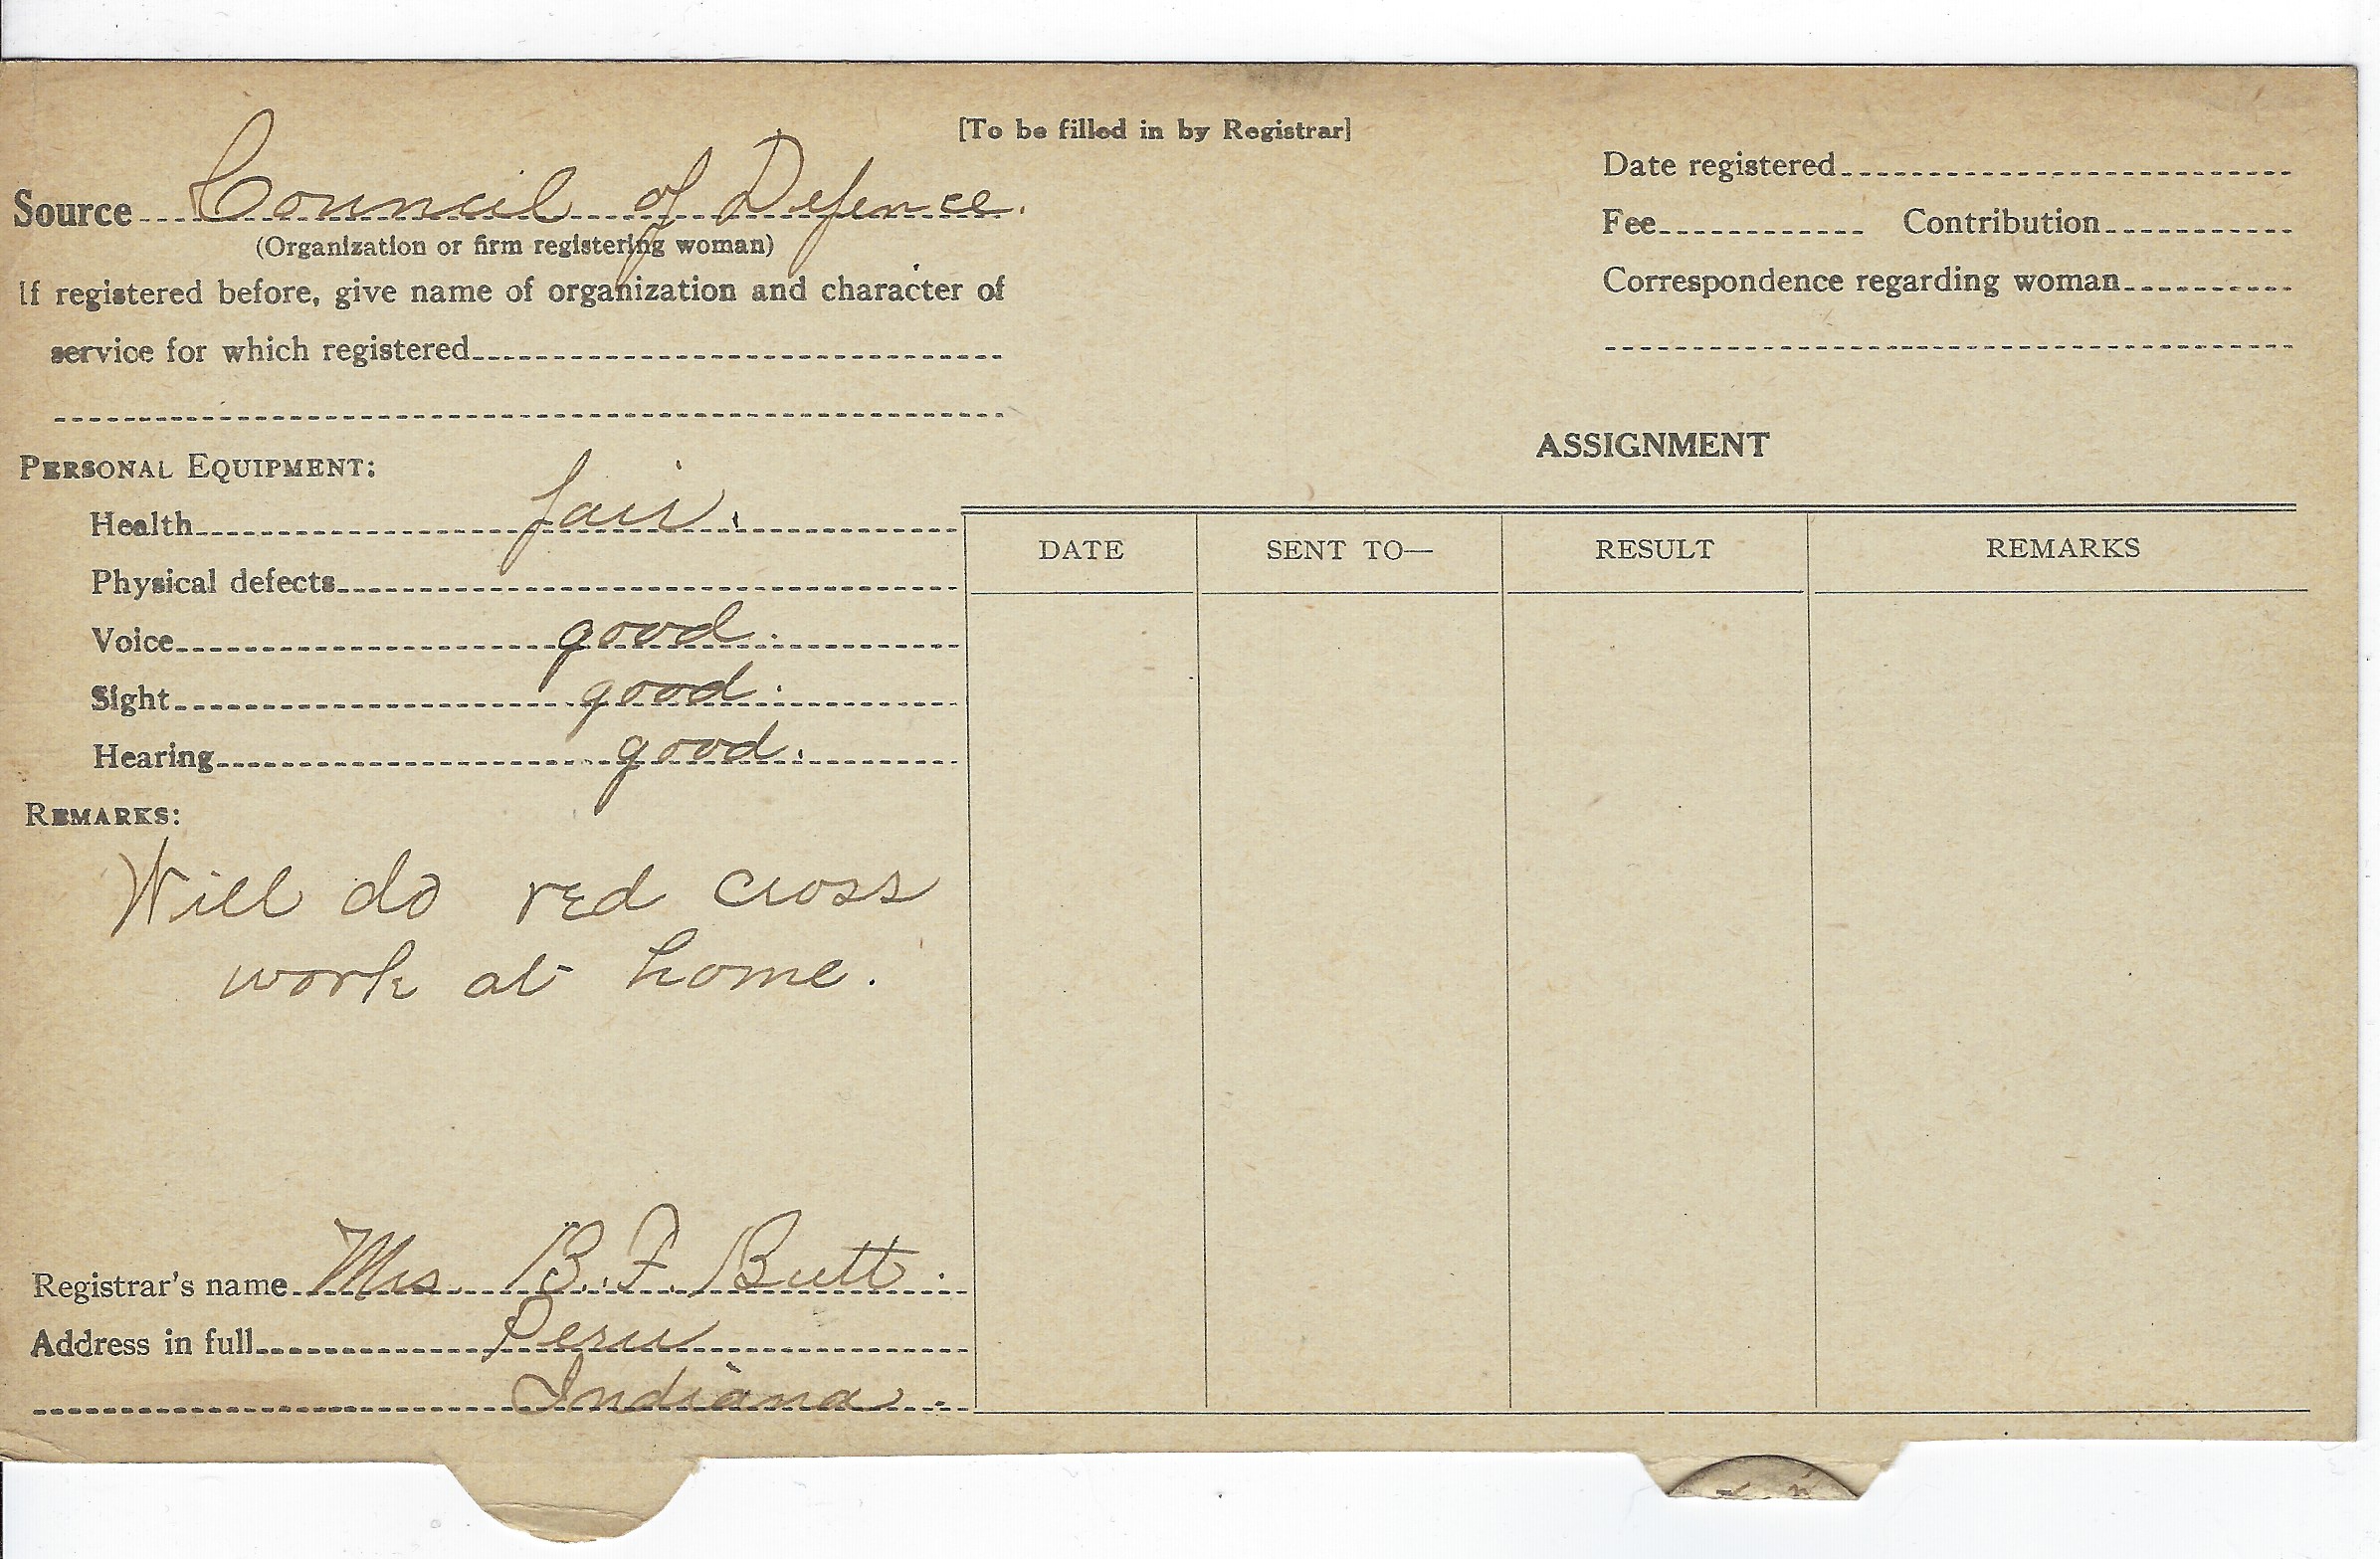 [To be filled in by Registrar]
Source Council of Defence.
(Organization or firm registering woman)
If registered before, give name of organization and character of
service for which registered
Date registered
Fee Contribution
Correspondence regarding woman
PERSONAL EQUIPMENT:
Health fair.
Physical defects
Voice good.
Sight good.
Hearing good.
REMARKS:
Will do red cross
work at home.
Registrar's name Mrs. B. F. Butt.
Address in full Peru
Indiana.
ASSIGNMENT
DATE SENT TO— RESULT REMARKS